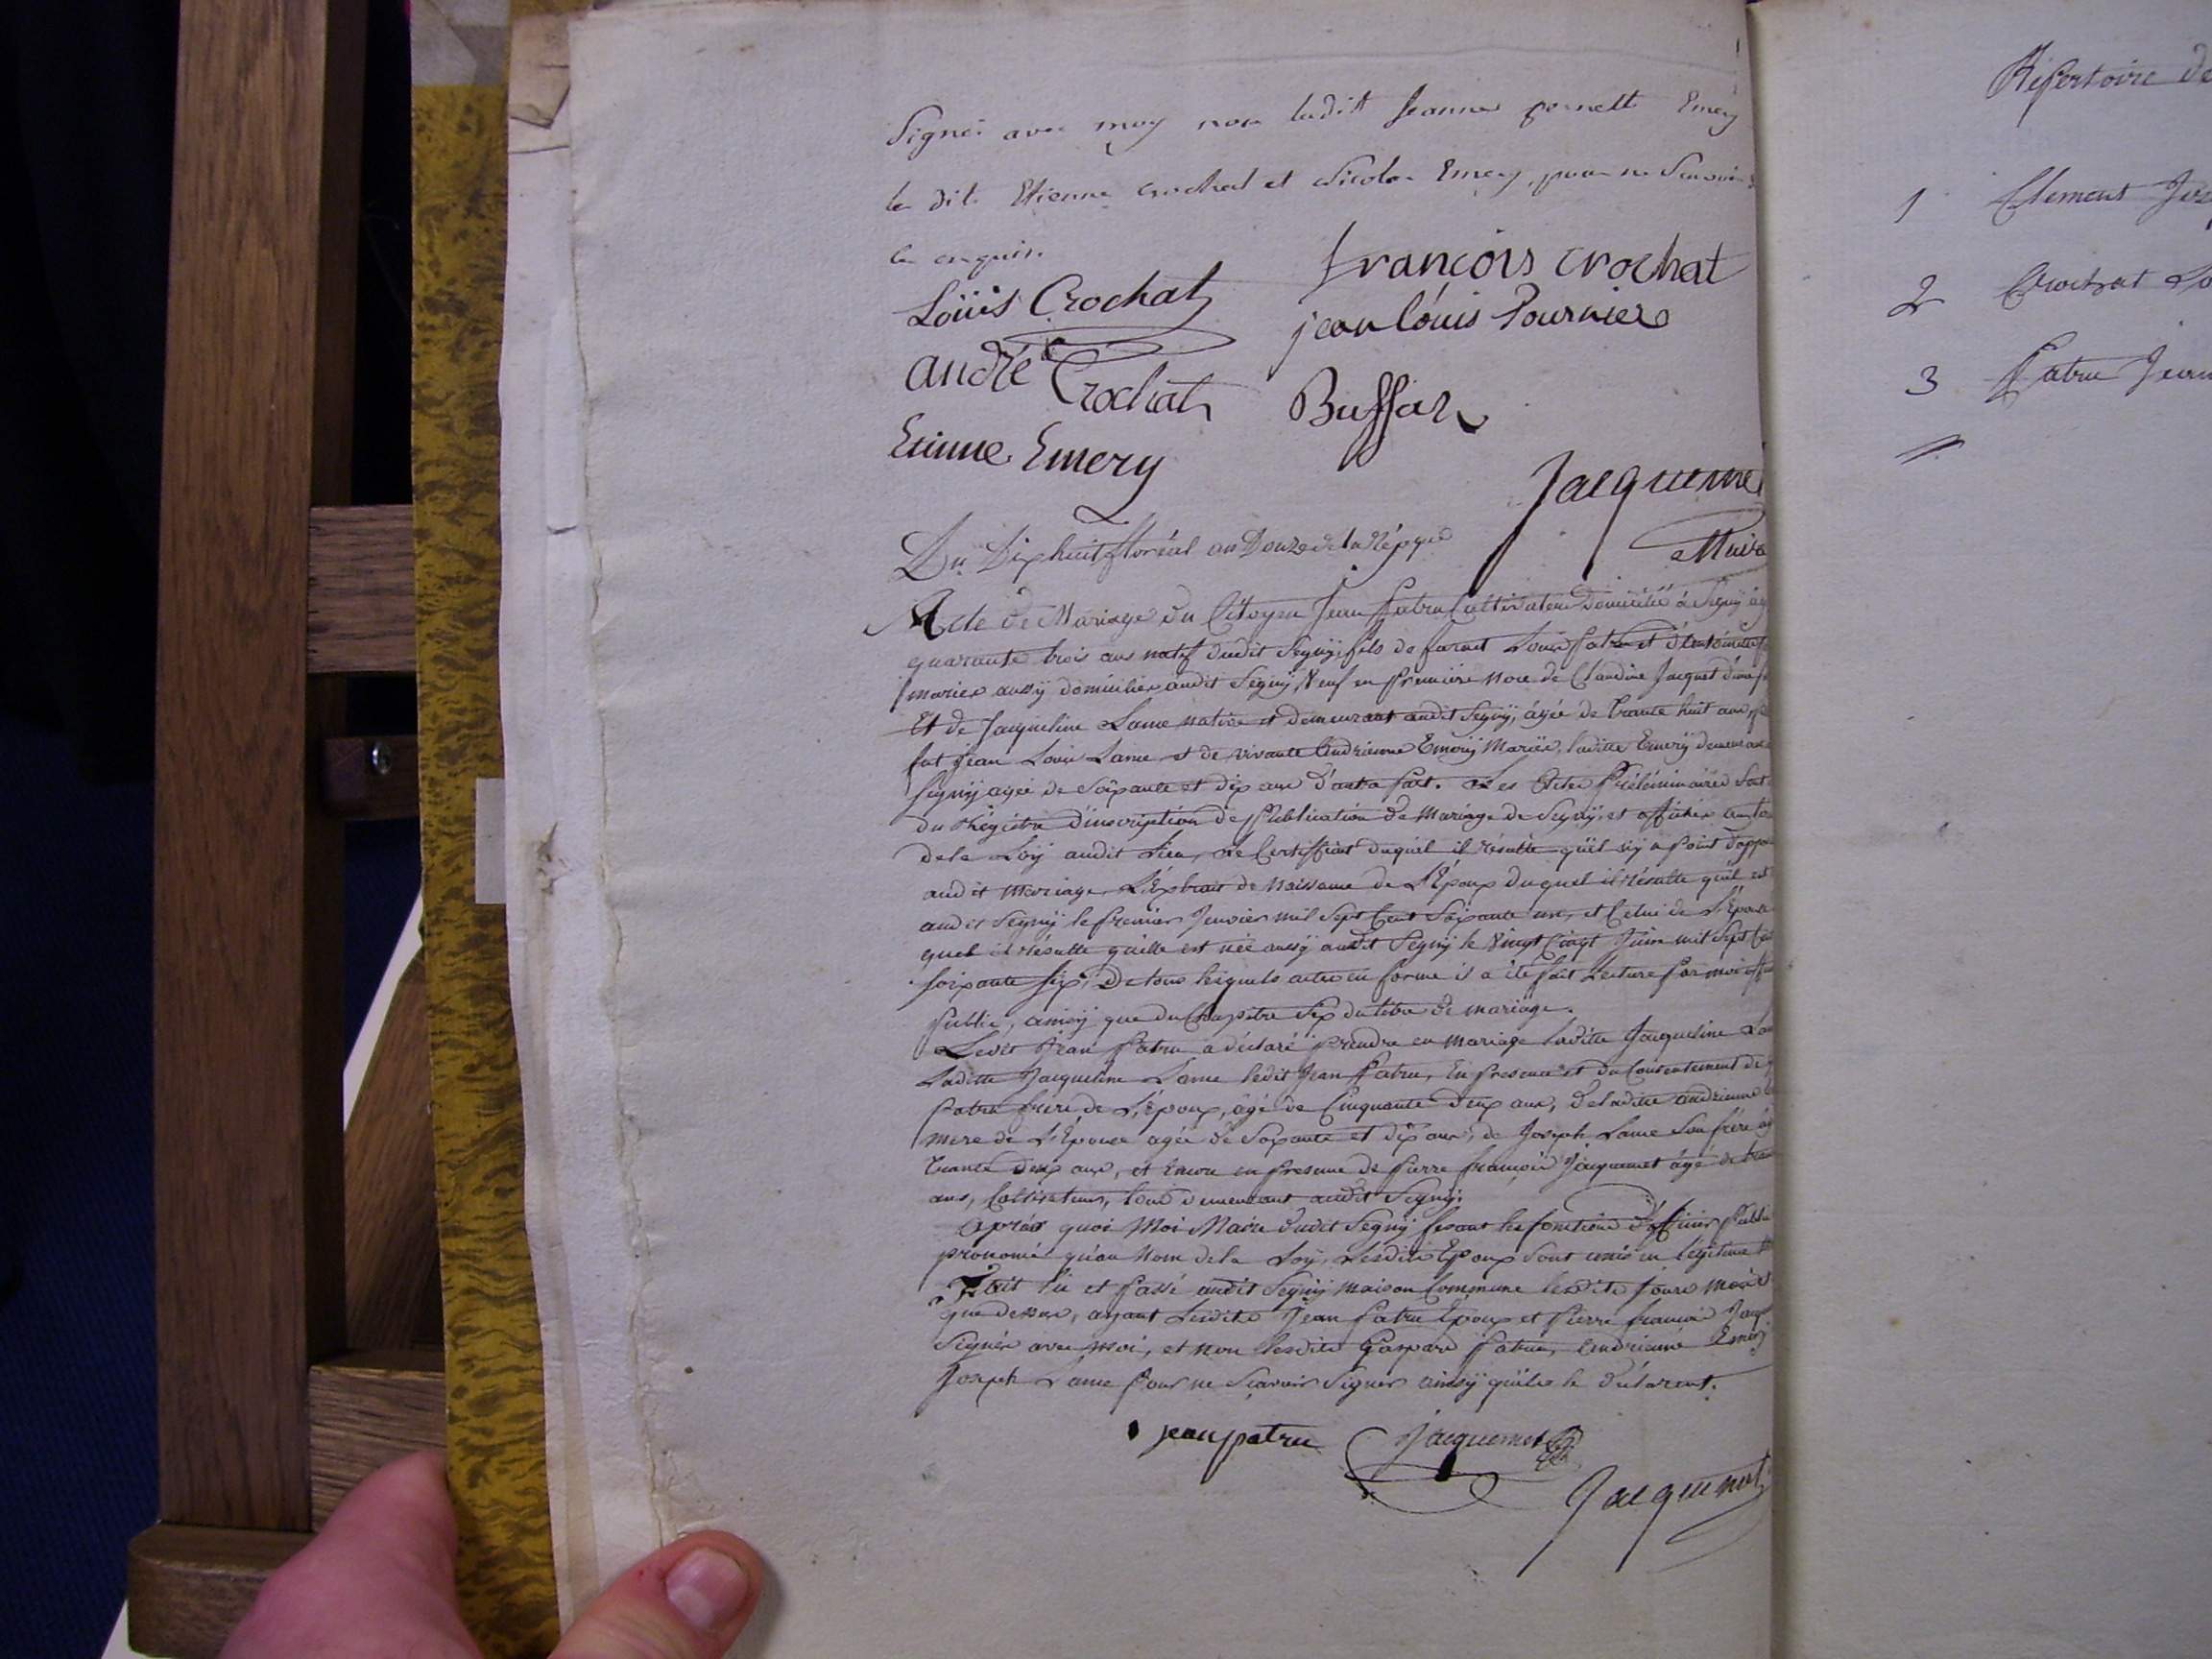 Signé avec moy non ladit Jeanne pernett Emery
le dit Etienne Crochat et Nicola Emery, pour ne Scavoir
le enquis.
Loüis Crochat
françois crochat
jean loúis Pournier
andré Crochat
Buffar
Etinne Emery
Jacquemet
Maire
Du Dixhuit floréal an Douze de la Répque
Acte de Mariage du Citoyen Jean Patru Cultivateur domicilié à Segny âgé
quarante trois ans natif dudit Segny, fils de furent Louis Patru et d'Antoinette
mariés aussÿ domiciliés audit Segnÿ, Veuf en première noce de Claudine Jacquet d'une p
Et de Jacqueline Lame native et demeurant audit Segnÿ, âgée de trante huit ans,
fut Jean Louis Lame et de vivante Andrienne Emerÿ Mariés, laditte Emerÿ demeurant
Segnÿ agée de Soixante et dix ans d'autre part. Les Actes Préléminaires Sont
du Régistre d'inscription de Publication de Mariage de Segnÿ, et affichés
de la Loÿ audit Lieu, Le Certifficat duquel il résulte qu'il n'ÿ a Point d'oppo
audit Mariage, L'Éxtrait de Naissance de L'Époux duquel il résulte qu'il est
audit Segnÿ le Premier Janvier mil Sept Cent Soixante une, et Celui de L'Épouse
quel il résulte qu'elle est née aussÿ audit Segnÿ le Vingt Cinqt Juin mil Sept Cent
Soixante Six; De tous lesquels actes en forme il a été fait Lecture Par moi off
Public, ainsÿ que du Chapitre Six du titre de mariage.
Ledit Jean Patru a déclaré Prendre en Mariage laditte Jacqueline La
Laditte Jacqueline Lame ledit Jean Patru, En Presence et du Consentement de
Patru frère de L'Époux, âgé de Cinquante deux ans, de laditte andrienne
mere de L'Épouse agée de Soixante et dix ans, de Joseph Lame Son frère âg
trante deux ans, et Encore en Presence de Pierre françois Jacquemet âgé de tran
ans, Coltivateurs, tous demeurant audit Segnÿ.
Après quoi Moi Maire dudit Segnÿ fesant les fonctions d'officier Public
prononcé qu'au Nom de la Loÿ, Lesdits Epoux Sont unis en légitime
Fait lu et Passé audit Segnÿ Maison Commune lesdits Jours Mois et
que dessus, ayant Lesdits Jean Patru Époux et Pierre françois Jacq
Signés avec Moi, et non lesdits Gaspard Patru, Andrienne Emerÿ
Joseph Lame Pour ne Scavoir Signer ainsÿ qu'ils le déclarent.
jean patru
jacquemet
Jacquemet
Répertoire de
1 Clement
2 Crochat Lo
3 Patru Jean